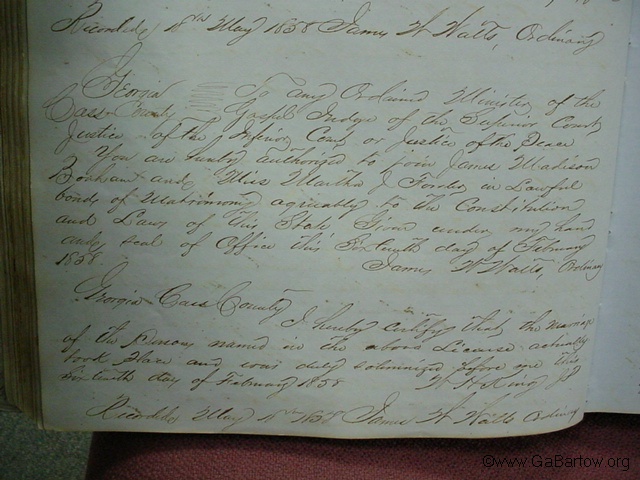 Recorded 18th May 1858 James W Watts, Ordinary
Georgia To any Ordained Minister of the
Cass County Gospel Judge of the Superior Court
Justice of the Inferior Court or Justice of the Peace
You are hereby authorized to join James Madison
and Miss Martha J in Lawful
bonds of Matrimony agreeably to the Constitution
and Laws of this State Given under my hand
and seal of Office this Sixteenth day of February
1858 James W Watts, Ordinary
Georgia Cass County
I hereby certify that the marriage
of the Persons named in the above License actually
took place and was duly solemnized before me this
Sixteenth day of February 1858 W H King JP
Recorded May 18th 1858 James W Watts Ordinary
©www.GaBartow.org